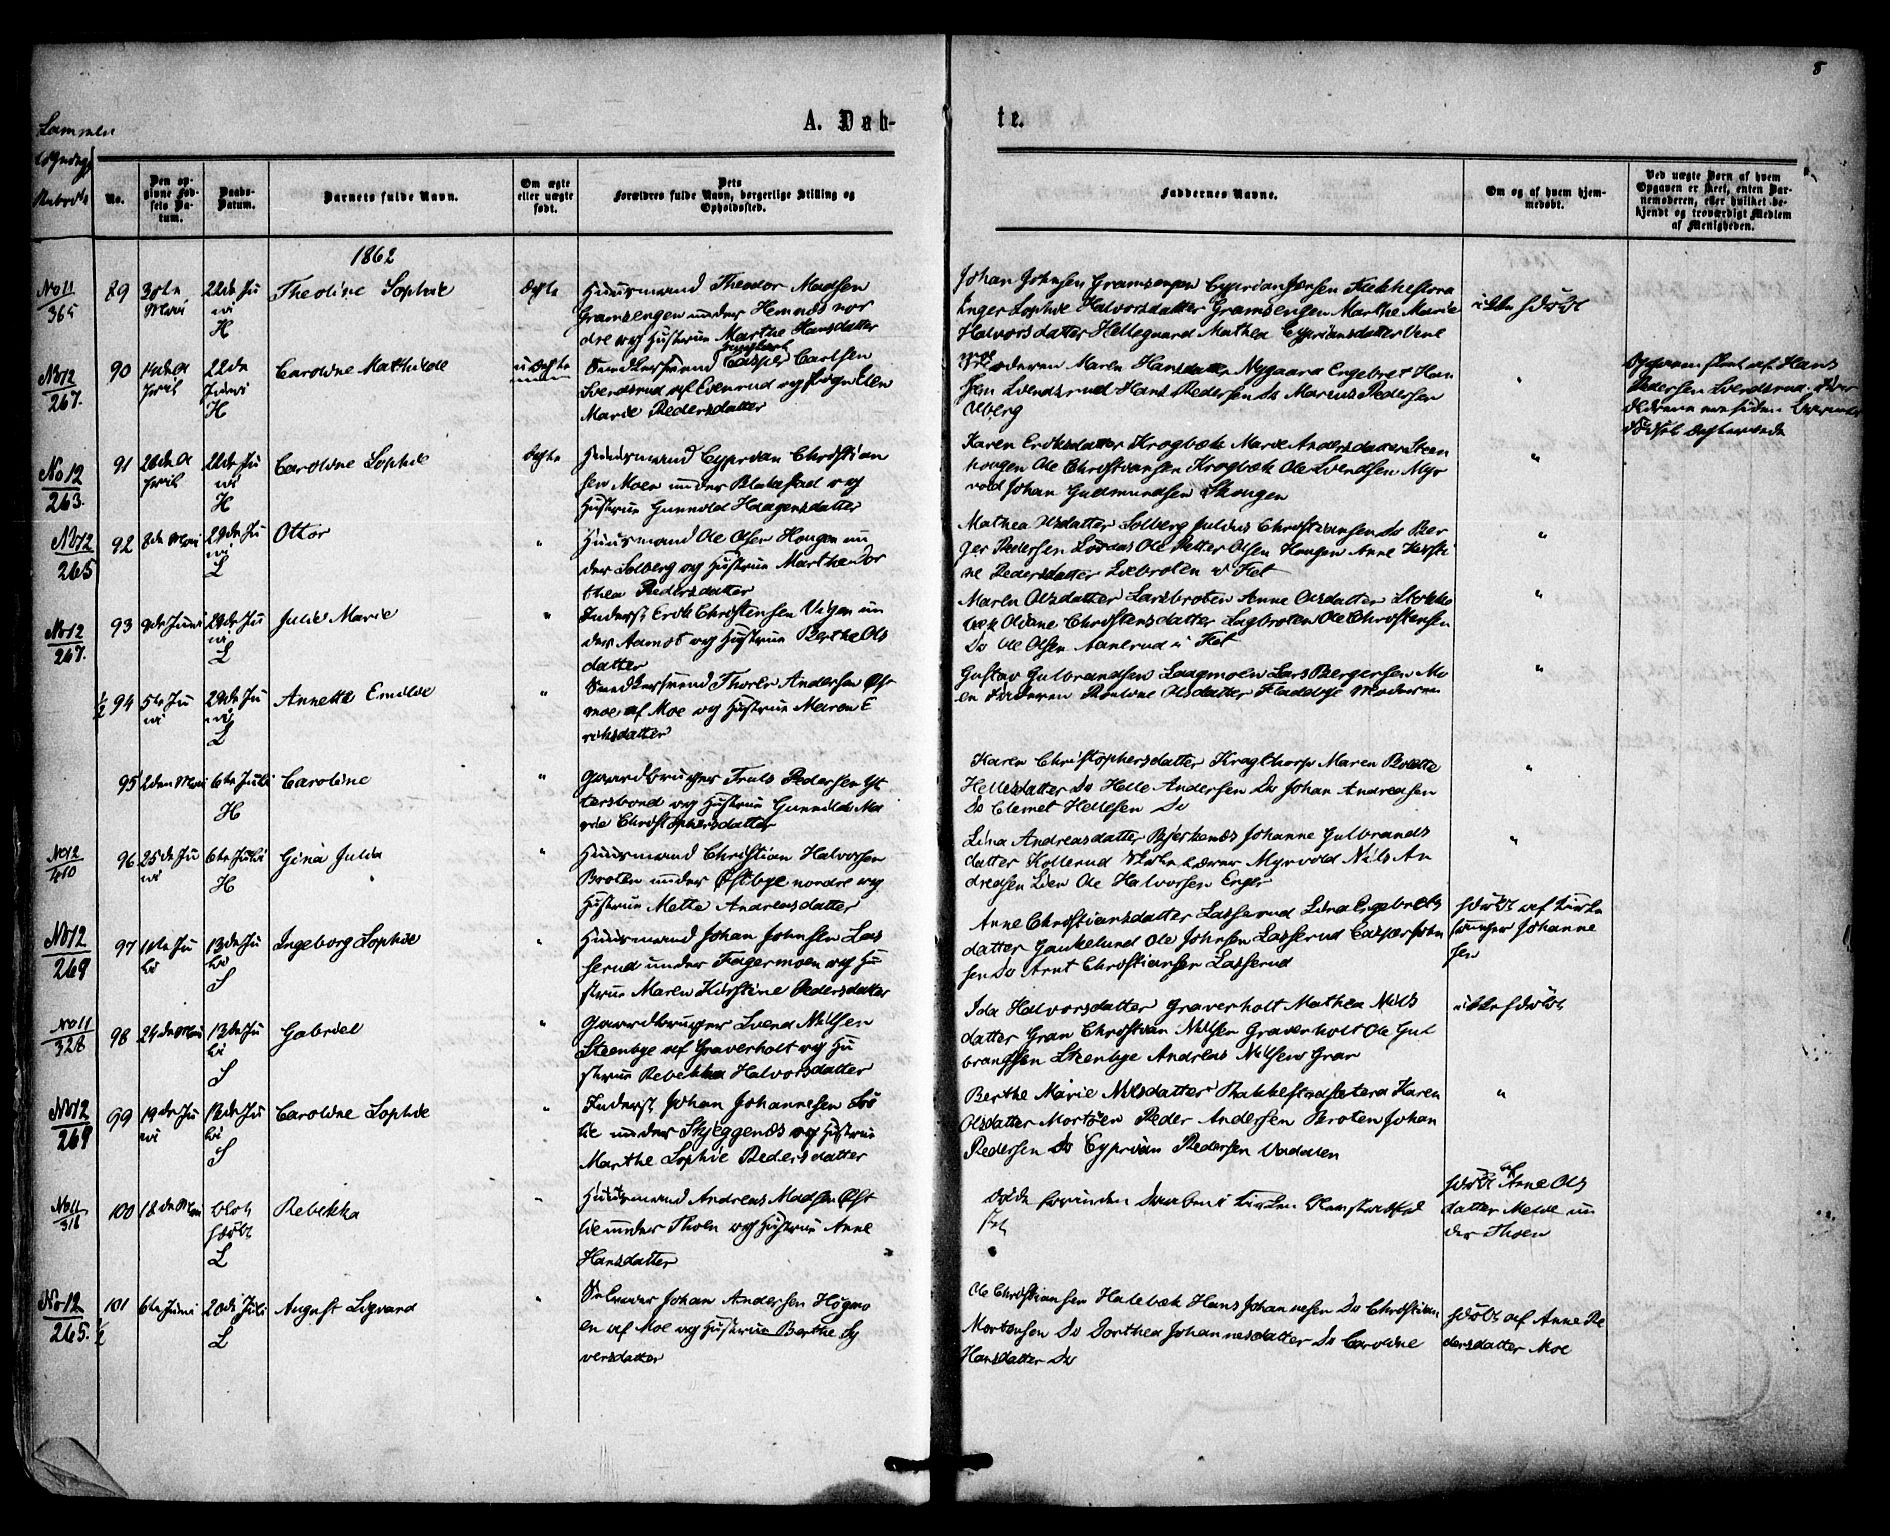 8
A. Døb-
te.
No.
Den op-
givne Fød-
sels Da-
tum.
Daabs-
Datum.
Barnets fulde Navn.
Om ægte
eller uægte
født.
Dets
Forældres fulde Navn, borgerlige Stilling og
Opholdssted.
Faddernes Navne.
Om og af hvem hjem-
medøbt.
Ved uægte Børn af hvem
Opgaven er skeet, enten Bar-
nemoderen, eller hvilket be-
kjendt og troværdigt Medlem
af Menigheden.
1862
No 11
365
89
Mai
22de Ju
ni
H
Theoline Sophie
ægte
Huusmand Theodor Madsen
Gramsengen under Hemnes nor
dre og Hustrue Marthe Hansdatter
Johan Johnsen Gramsengen Cyprian Jensen
Inger Sophie Halvorsdatter Gramsengen Marthe Marie
Halvorsdatter Hellegaard Mathea Cypriansdatter
ikke hjdøbt
No 12
267.
90
14de A
pril
22de
Juni
H
Caroline Mathilde
uægte
Ungkarl Casper Carlsen
af og Pige Elen
Marie Pedersdatter
Moderen Maren Hansdatter Nygaard Engebret Han
sen Svendsrud Hans Pedersen Do Marius Pedersen
Ulberg
"
Opgaven skeet af Hans
Pedersen Svendsrud.
No 12
263.
91
A
pril
22de Ju
ni
H
Caroline Sophie
ægte
Huusmand Cyprian Christian
sen Moen under Blakstad og
Hustrue Gunnild Haagensdatter
Karen Eriksdatter Krogbæk Marie Andersdatter Steen
hougen Ole Christiansen Krogbæk Ole Svendsen Myr
vold Johan Gudmundsen Skougen
"
No 12
265
92
8de Mai
29de Ju
ni
L
Otto
"
Huusmand Ole Olsen Hougen un
der Solberg og Hustrue Marthe Dor
thea Pedersdatter
Mathea Olsdatter Solberg Julius Christiansen Do Ber
ger Pedersen Ole Petter Olsen Hougen Anne Kirsti
ne Pedersdatter i Fet
"
No 12
267.
93
9de Juni
29de Ju
ni
L
Julie Marie
"
Inderst Erik Christensen Vigen un
der Aamot og Hustrue Berthe Ols
datter
Maren Olsdatter Larsbroten Anne Olsdatter Stokke
bæk Oldine Christensdatter Ole Christensen
Do Ole Olsen i Fet
"
1/2
94
5te Ju
ni
29de Ju
ni
L
Annette Emilie
"
Thorer Andersen Øst
moe af Moe og Hustrue Maren E
riksdatter
Gustav Gulbrandsen Laagmoen Lars Bergersen Mo
en Faderen Pauline Olsdatter Moderen
"
95
2den Mai
6te Juli
H
Caroline
"
Gaardbruger Truls Pedersen Yt
tersbond og Hustrue Gunnild Ma
rie Christophersdatter
Karen Christophersdatter Kragtorp Maren Bolette
Hellesdatter Do Helle Andersen Do Johan Andreasen
Do Clemet Hellesen Do
"
No 12
96
25de Ju
ni
6te Juli
H
Gina Julia
"
Huusmand Christian Halvorsen
Broten under Østbye nordre og
Hustrue Mette Andreasdatter
Lina Andreasdatter Bjerkenæs Johanne Gulbrands
datter Kollerud Skolelærer Myrvold Nils An
dreasen Lien Ole Halvorsen Enger
"
No 12
269
97
Ju
li
13de Ju
li
S
Ingeborg Sophie
"
Huusmand Johan Johnsen Las
serud under Fagermoen og Hu
strue Maren Kirstine Pedersdatter
Anne Christiansdatter Lasserud Lina Engebrets
datter Gaukelund Ole Johnsen Lasserud Casper John
sen Do Arnt Christiansen Lasserud
hjdøbt af Kirke
sanger Johanne
sen
No 11
328
98
24de Mai
13de Ju
li
S
Gabriel
"
Gaardbruger Svend Nilsen
Steenbye af Graverholt og Hu
strue Rebekka Halvorsdatter
Ida Halvorsdatter Graverholt Mathea Nils
datter Gran Christian Nilsen Graverholt Ole Gul
brandsen Steenbye Andreas Nilsen Gran
ikke hjdøbt
No 12
269
99
19de Ju
ni
13de Ju
li
S
Caroline Sophie
"
Inderst Johan Johannesen
lie under Skjeggenæs og Hustrue
Marthe Sophie Pedersdatter
Berthe Marie Nilsdatter Bakkestadsætera Karen
Olsdatter Peder Andersen Broten Johan
Pedersen Do Cyprian Pedersen
"
No 11
316
100
18de Mai
blot
hjdøbt
L
Rebekka
"
Huusmand Andreas Madsen Øst
lie under Thoen og Hustrue Anne
Hansdatter
døde forinden Daaben i Kirken
hjdøbt af Anne Ols
datter Melie un
der Thoen
No 12
265.
1/2
101
6te Juni
20de Juli
L
August Sigvard
"
Selveier Johan Andersen Høgmo
en af Moe og Hustrue Berthe Sy
versdatter
Ole Christiansen Halebæk Hans Johannesen Do Christian
Mortensen Do Dorthea Johannesdatter Do Caroline
Hansdatter Do
hjdøbt af Anne Pe
dersdatter Moe